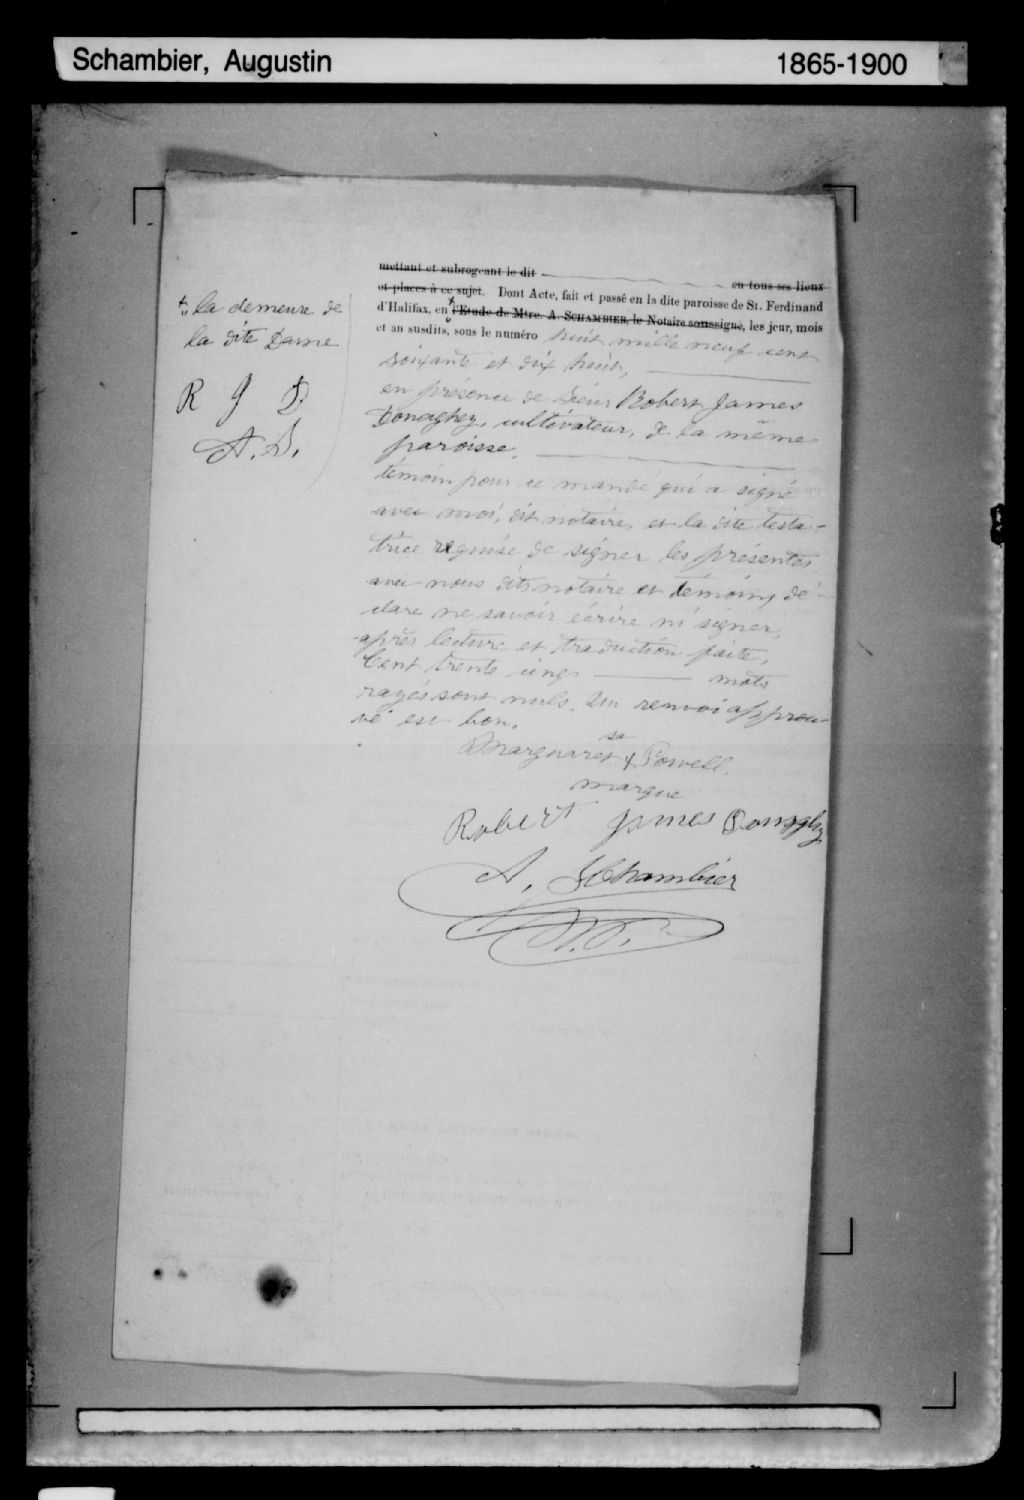 Schambier, Augustin 1865-1900
mettant et subrogeant le dit en tous ses lieux
et places à ce sujet. Dont Acte, fait et passé en la dite paroisse de St. Ferdinand
d'Halifax, en l'Etude de Mtre. A. SCHAMBIER, le Notaire soussigné, les jour, mois
et an susdits, sous le numéro huit mille neuf cent
soixante et dix huit,
en présence de Sieur Robert James
Donaghey, cultivateur, de la même
paroisse,
témoin pour ce mandé qui a signé
avec moi, dit notaire, et la dite testa-
trice requise de signer les présentes
avec nous dits notaire et témoins dé-
clare ne savoir écrire ni signer,
après lecture et traduction faite,
Cent trente cinq mots
rayés sont nuls. Un renvoi approu-
vé est bon.
sa
Marguaret + Powell.
marque
Robert James Donaghy
A. Schambier
N.P.
+ la demeure de
la dite Dame
R J D.
A. S.